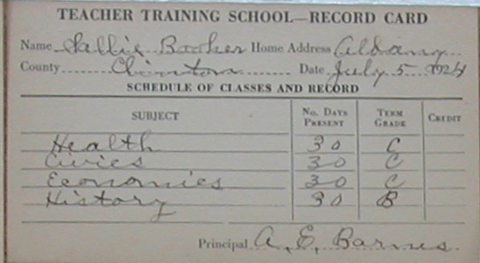 TEACHER TRAINING SCHOOL—RECORD CARD
Name Sallie Booker Home Address Albany
County Clinton Date July 5 1924
SCHEDULE OF CLASSES AND RECORD
SUBJECT No. Days Present Term Grade Credit
Health 30 C
Civics 30 C
Economics 30 C
History 30 B
Principal A. E. Barnes